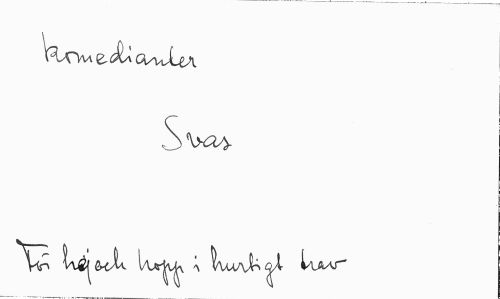 komedianter
Svas
För hej och hopp i hurtigt trav